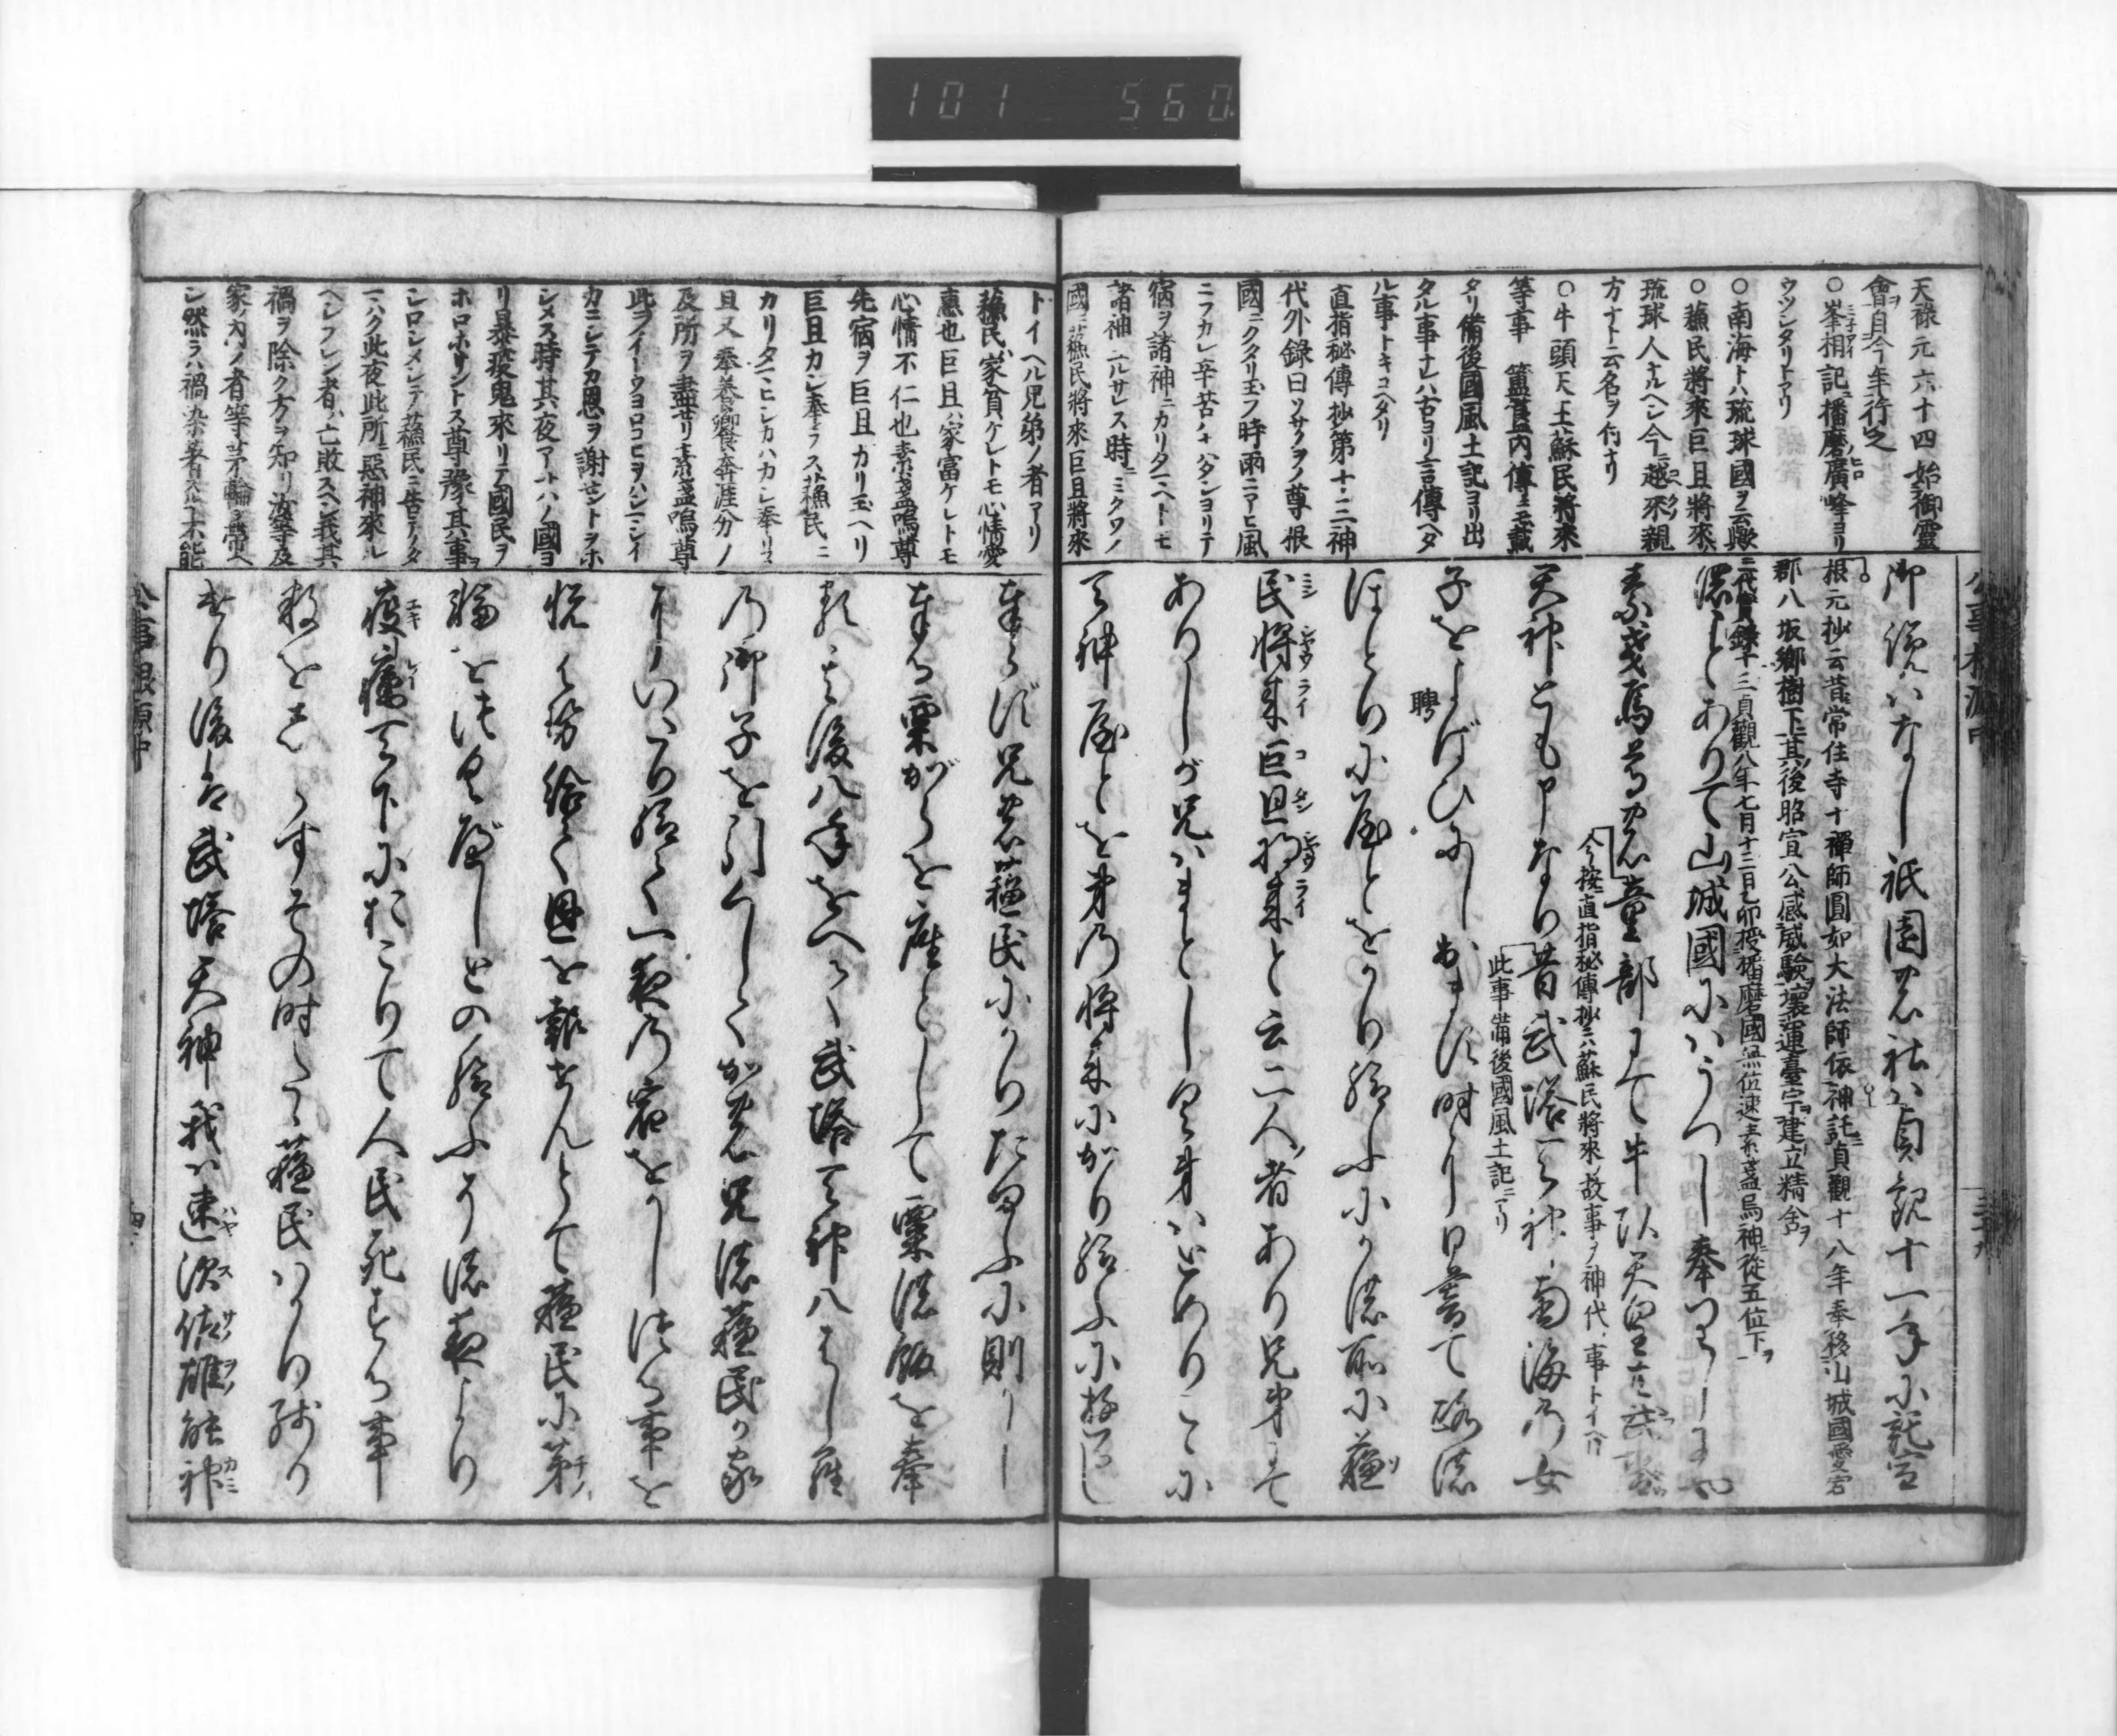 101 560
天禄元六十四始御靈
會ヲ自今年行之
○峯相記ニ播磨廣峰ヨリ
ウツシタリトアリ
○南海トハ琉球國ヲ云歟
○蘓民將來巨旦將來ハ
琉球人ナルヘシ今ニ越來親
方ナト云名ヲ付ナリ
○牛頭天王蘇民將來
等事 簠簋内傳ニモ載
タリ備後國風土記ヨリ出
タル事ナレハ古ヨリ言傳ヘタ
ル事トキコヘタリ
直指秘傳抄第十二神
代外錄曰ソサノヲノ尊根
國ニクタリ玉フ時雨ニアヒ風
ニフカレ辛苦ハナハタシヨリテ
宿ヲ諸神ニカリタマヘトモ
諸神ユルサレス時ニミクワノ
國ニ蘓民將來巨旦將來
御領ハなし祇園の社ハ貞観十一年に託宣
根元抄云昔常住寺十禪師圓如大法師依神託貞觀十八年奉移山城國愛宕
郡八坂郷樹下其後昭宣公感威驗壞運臺宇建立精舍ヲ
三代實録十三貞觀八年七月十三日乙卯授播磨國無位速素盞烏神從五位下ヲ
の事ありて山城國にうつし奉りしにや
素戔烏尊の童部にて牛頭天皇共武塔
今按直指秘傳抄ニハ蘇民將來ノ故事ヲ神代ノ事トイヘリ
天神とも申なり昔武塔天神南海の女
此事備後國風土記ニアリ
子をよばひにしおます時に日暮て路の
聘
ほとりに屋とをかり給ふにかの所に蘓
民將來巨旦將来と云二人ノ者あり兄弟にて
ありしが兄ハまとしく弟ハとめりこゝに
天神屋とを弟の將来にかり給ふに許さし
トイヘル兄弟ノ者アリ
蘓民ハ家貧ケレトモ心情愛
惠也巨旦ハ家富ケレトモ
心情不仁也素盞嗚尊
先宿ヲ巨旦ニカリ玉ヘリ
巨旦カシ奉ラス蘓民ニ
カリタマヒシカハカシ奉リヌ
且又奉養饗奔涯分ノ
及所ヲ盡セリ素盞嗚尊
此ヲイトウヨロコヒヲハシマシイ
カニシテカ恩ヲ謝セントヲホ
シメス時其夜アナハノ國ヨ
リ暴疫鬼來リテ國民ヲ
ホロホサントス尊豫其事ヲ
シロシメシテ蘓民ニ告テノタ
マハク此夜此所ニ惡神來ル
ヘシフレン者ハ亡敗スヘシ我其
禍ヲ除ク方ヲ知リ汝等及
家ノ内ノ者等茅輪ヲ帶ヘ
シ然ラハ禍染着スルコト不能
奉らず兄の蘓民にかりたまふに則かし
奉る粟がらを座として粟の飯を奉
れりその後八年をへて武塔天神八はしら
の御子を引くして彼の兄の蘓民が家
にいたり給て一夜の宿をかしつる事を
悦ひ給て恩を報せんとて蘓民に茅ノ
輪をつくべしとの給ふその夜より
疫癘天下におこりて人民死する事
數をしらすその時たゝ蘓民ハかり残り
けり後に武塔天神我ハ速須佐雄能神
公事根源中